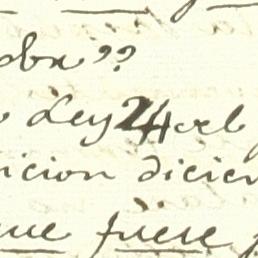 obra??
Ley 24 del
icion dicien
que fuere